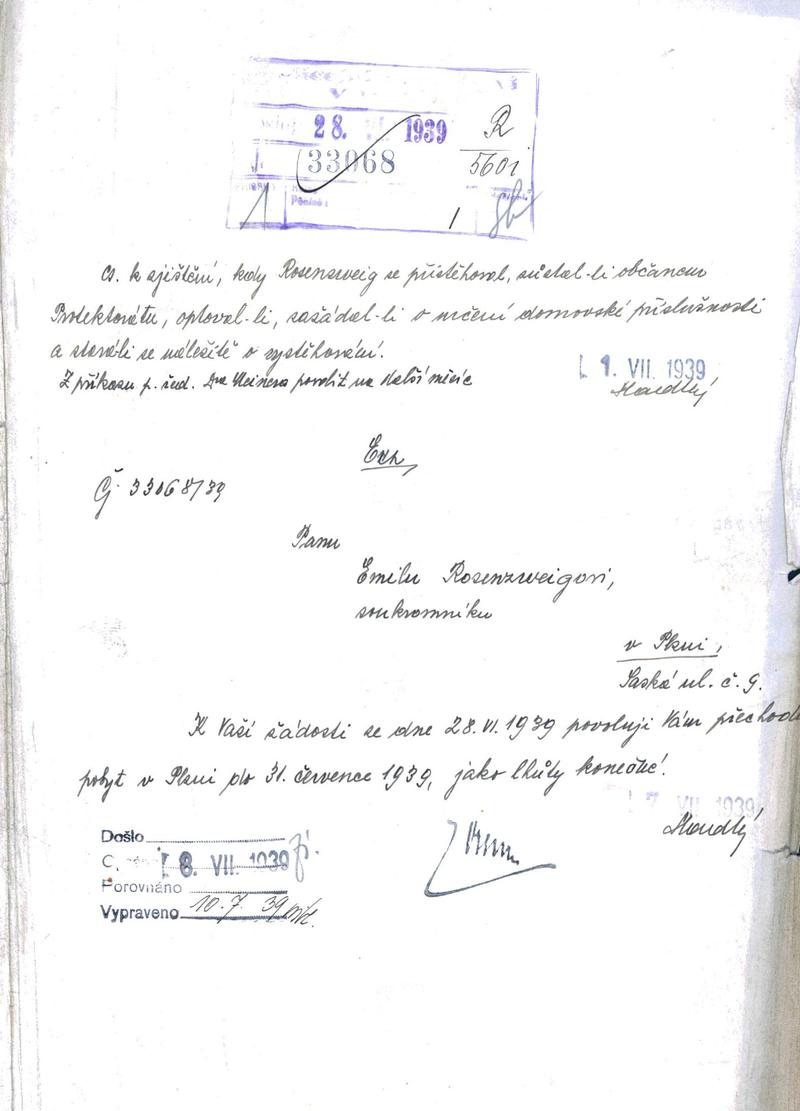 28. VII. 1939
R
33068
5601
1
1
Cs. k zjištění, kdy Rosenzweig se přistěhoval, zůstal-li občanem
Protektorátu, optoval-li, zažádal-li o určení domovské příslušnosti
a staráli se náležitě o vystěhování.
1. VII. 1939
Z příkazu p. řed. Dra Meinera povolit na další měsíc
Exh.
Čj 33068/39
Panu
Emilu Rosenzweigovi,
soukromníku
v Plzni,
Saská ul. č. 9.
K Vaší žádosti ze dne 28. VI. 1939 povoluji Vám přechod
pobyt v Plzni do 31. července 1939, jako lhůty konečné.
7. VII. 1939
Došlo
8. VII. 1939
Porovnáno
Vypraveno 10. 7. 39